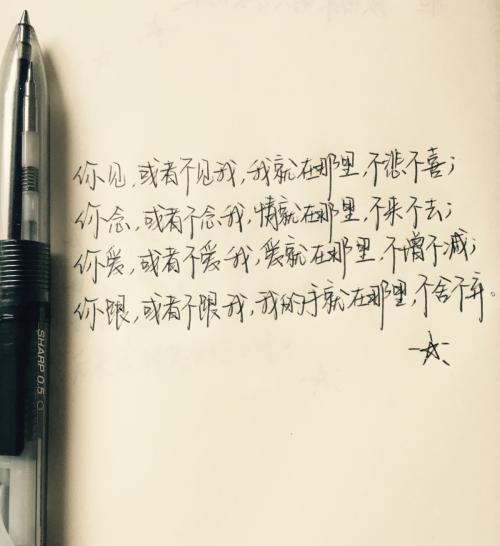 你见,或者不见我,我就在那里,不悲不喜;
你念,或者不念我,情就在那里,不来不去;
你爱,或者不爱我,爱就在那里,不增不减;
你跟,或者不跟我,我的手就在那里,不舍不弃。
SHARP 0.5